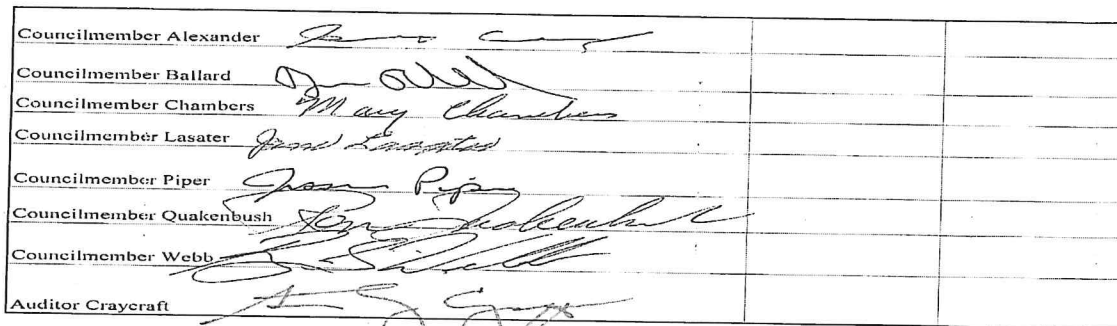 Councilmember Alexander
Councilmember Ballard
Councilmember Chambers Mary Chambers
Councilmember Lasater Jesse Lasater
Councilmember Piper Jason Piper
Councilmember Quakenbush Quakenbush
Councilmember Webb Webb
Auditor Craycraft